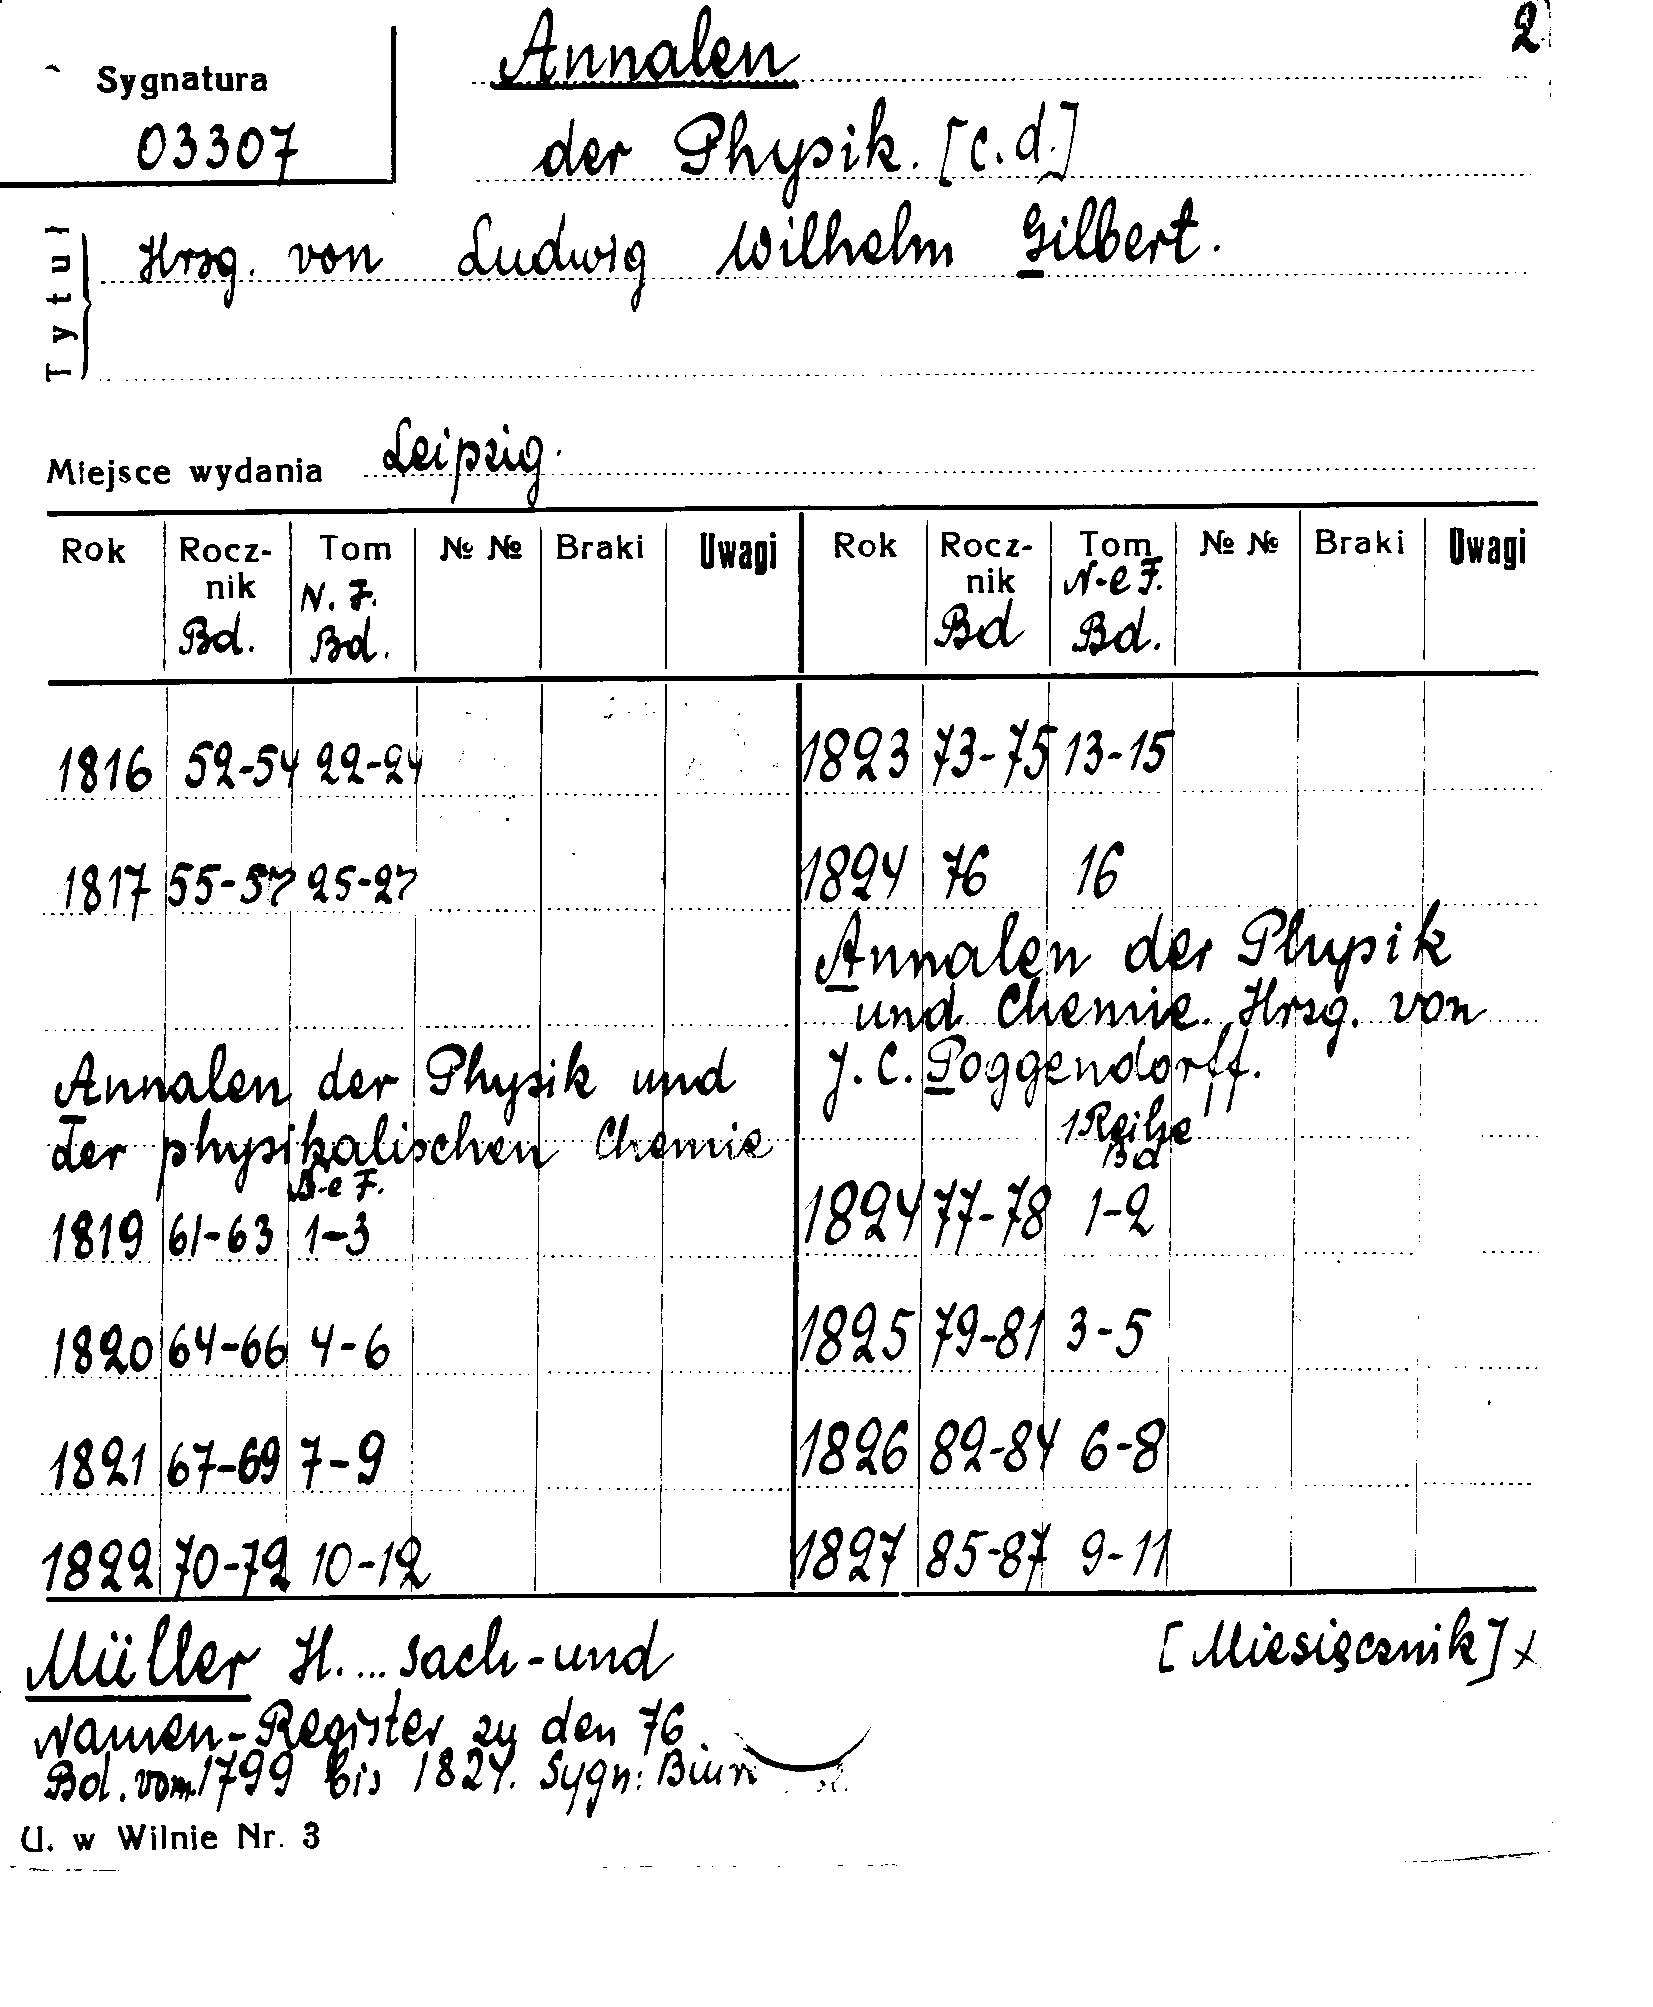 2
Sygnatura
03307
Annalen
der Physik. [c.d.]
Tytuł
Hrsg. von Ludwig Wilhelm Gilbert.
Miejsce wydania Leipzig.
Rok Rocz- Tom № № Braki Uwagi Rok Rocz- Tom № № Braki Uwagi
nik N. F. nik N-e F.
Bd. Bd. Bd Bd.
1816 52-54 22-24 1823 73-75 13-15
1817 55-57 25-27 1824 76 16
Annalen der Physik
und Chemie. Hrsg. von
J. C. Poggendorff.
Annalen der Physik und
der physikalischen Chemie
1 Reihe
Bd
N-e F.
1819 61-63 1-3 1824 77-78 1-2
1820 64-66 4-6 1825 79-81 3-5
1821 67-69 7-9 1826 82-84 6-8
1822 70-72 10-12 1827 85-87 9-11
Müller H. ... Sach-und [Miesięcznik] x
Namen-Register zu den 76
Bd. vom 1799 bis 1824. Sygn:
U. w Wilnie Nr. 3